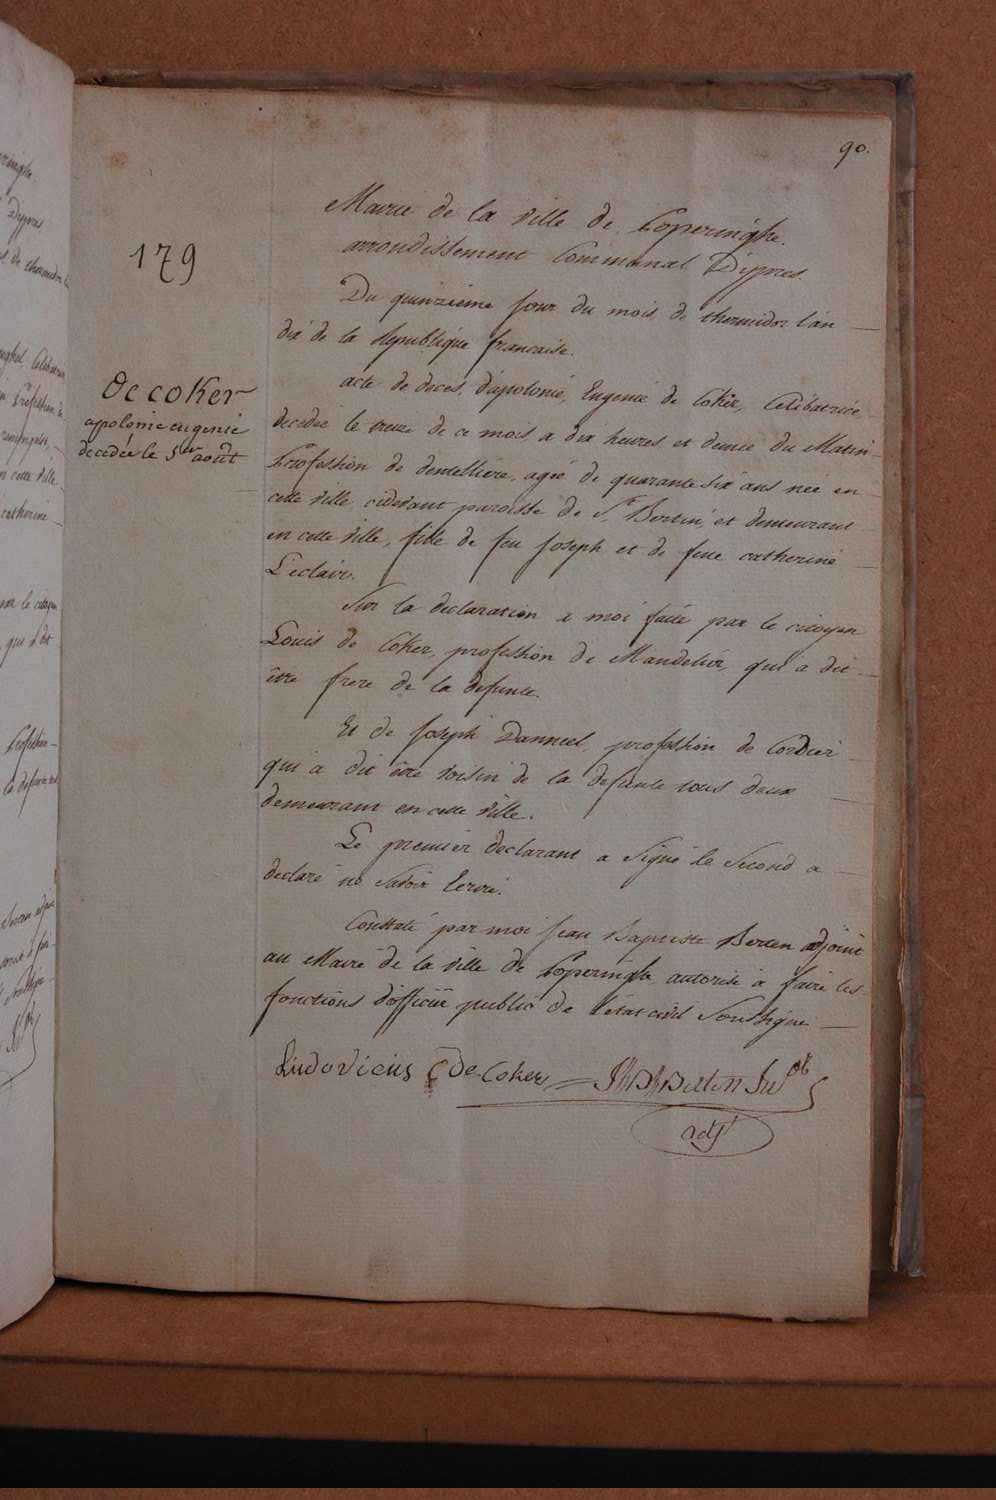 90.
179
De coker
apolonie eugenie
decedée le 5er août
Mairie de la ville de Loperinghe.
arrondissement Communal Dÿpres.
Du quinzieme jour du mois de thermidor l'an
dix de la republique francaise.
acte de deces, d'apolonie, Eugenie de Coker, Celibatrice
decedée le treize de ce mois a dix heures et demie du Matin
Profession de dentelliere, ageé de quarante six ans neé en
cette ville, cidevant paroisse de St. Bertin, et demeurant
en cette ville, fille de feu Joseph et de feue catherine
Leclair.
Sur la declaration a moi faite par le citoyen
Louis de Coker, profession de Mandelier, qui a dit
être frere de la defunte.
Et de Joseph Danneel, profession de Cordier
qui a dit être voisin de la defunte tous deux
demeurant en cette ville.
Le premier declarant a Signé le Second a
declaré ne Savoir Ecrire.
Constaté par moi Jean Baptiste Berten adjoint
au Maire de la ville de Loperinghe, autorisé à faire les
fonctions d'officier public de l'état civil Soussigné
Ludovicus De Coker
Berten
adjt